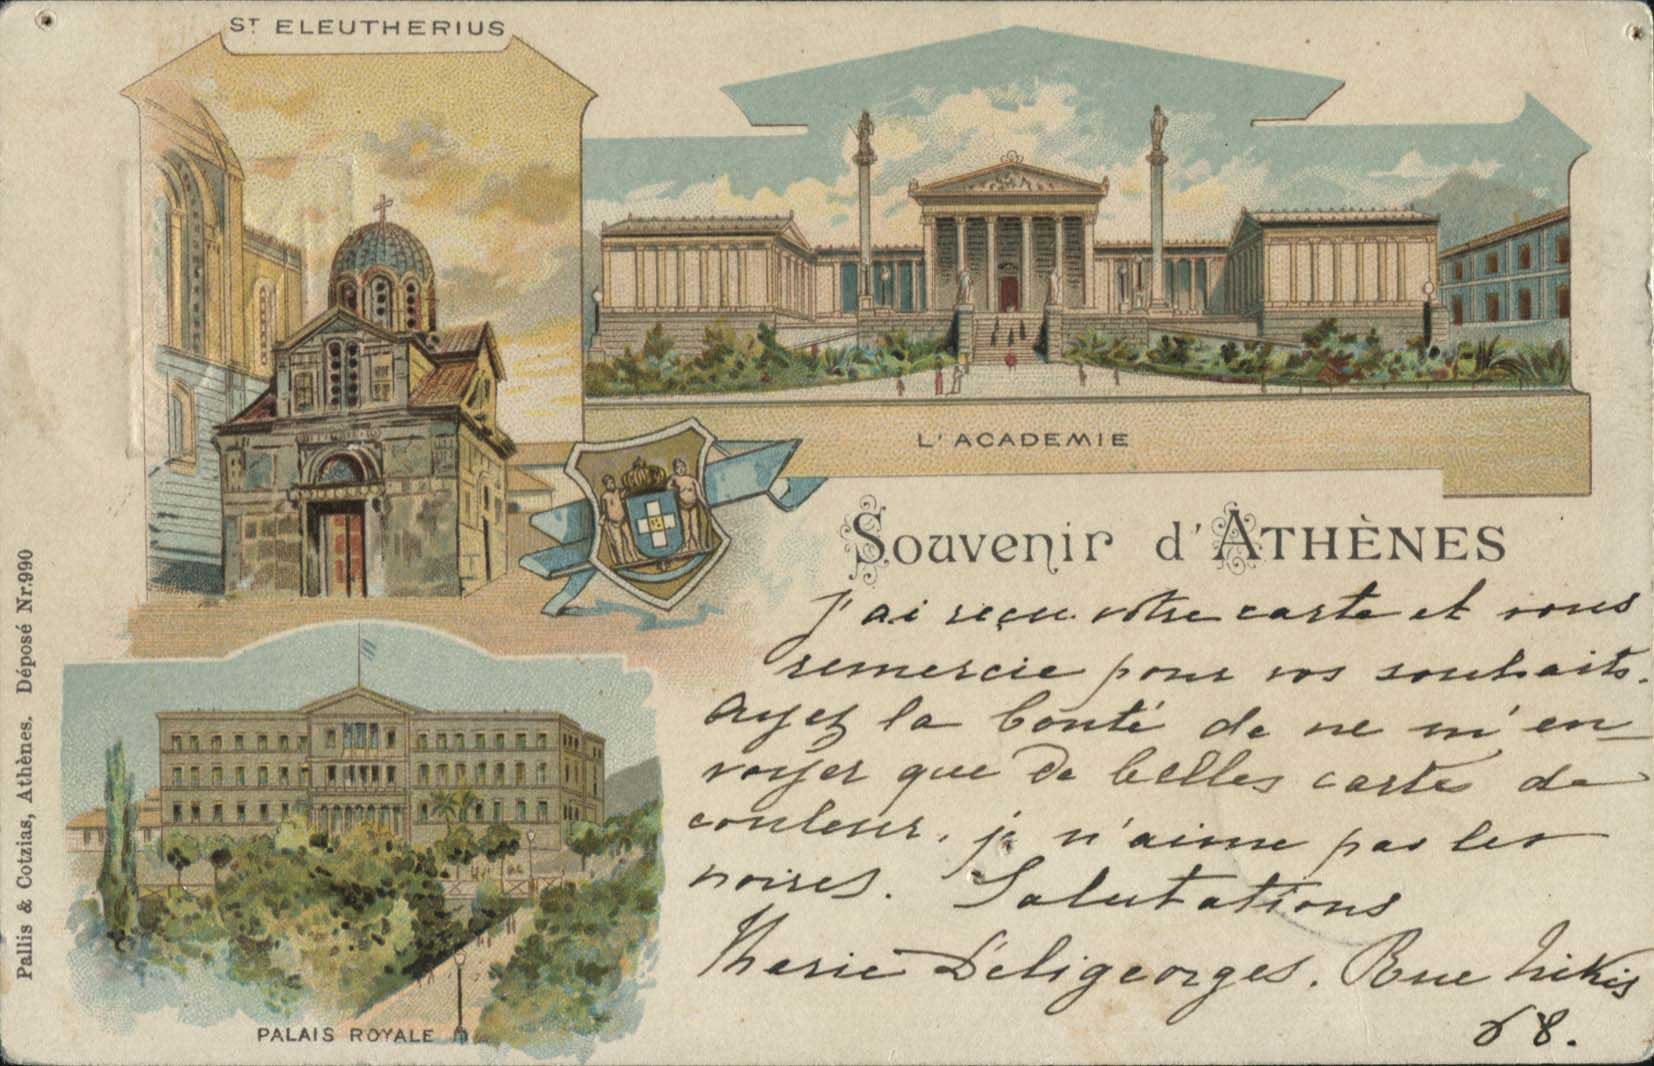 ST ELEUTHERIUS
L'ACADEMIE
Souvenir d'ATHÈNES
J'ai reçu votre carte et vous
remercie pour vos souhaits.
Ayez la bonté de ne m'en
voyer que de belles cartes de
couleur, je n'aime pas les
noires. Salutations
Marie Déligeorges. Rue Nikis
68.
PALAIS ROYALE
Pallis & Cotzias, Athènes. Déposé Nr.990